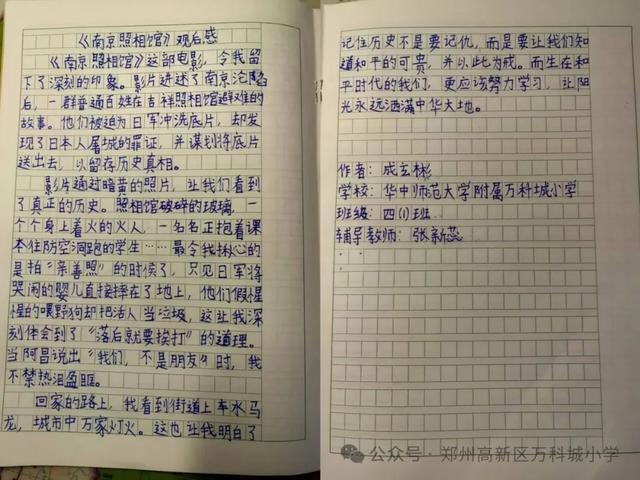 《南京照相馆》观后感
《南京照相馆》这部电影，令我留
下了深刻的印象。影片讲述了南京沦陷
后，一群普通百姓在吉祥照相馆避难的
故事。他们被迫为日军冲洗底片，却发
现了日本人屠城的罪证，并谋划将底片
送出去，以留存历史真相。
影片通过暗黄的照片，让我们看到
了真正的历史。照相馆破碎的玻璃，一
个个身上着火的火人，一名名正抱着课
本往防空洞跑的学生……最令我揪心的
是拍“亲善照”的时候了，只见日军将
哭闹的婴儿直接摔在了地上，他们假惺
惺的喂野狗却把活人当垃圾，这让我深
刻体会到了“落后就要挨打”的道理。
当阿昌说出“我们，不是朋友”时，我
不禁热泪盈眶。
回家的路上，我看到街道上车水马
龙，城市中万家灯火。这也让我明白了
记住历史不是要记仇，而是要让我们知
道和平的可贵，并以此为戒。而生在和
平时代的我们，更应该努力学习，让阳
光永远洒满中华大地。
作者：成玄彬
学校：华中师范大学附属万科城小学
班级：四（1）班
辅导教师：张新蕊
公众号·郑州高新区万科城小学